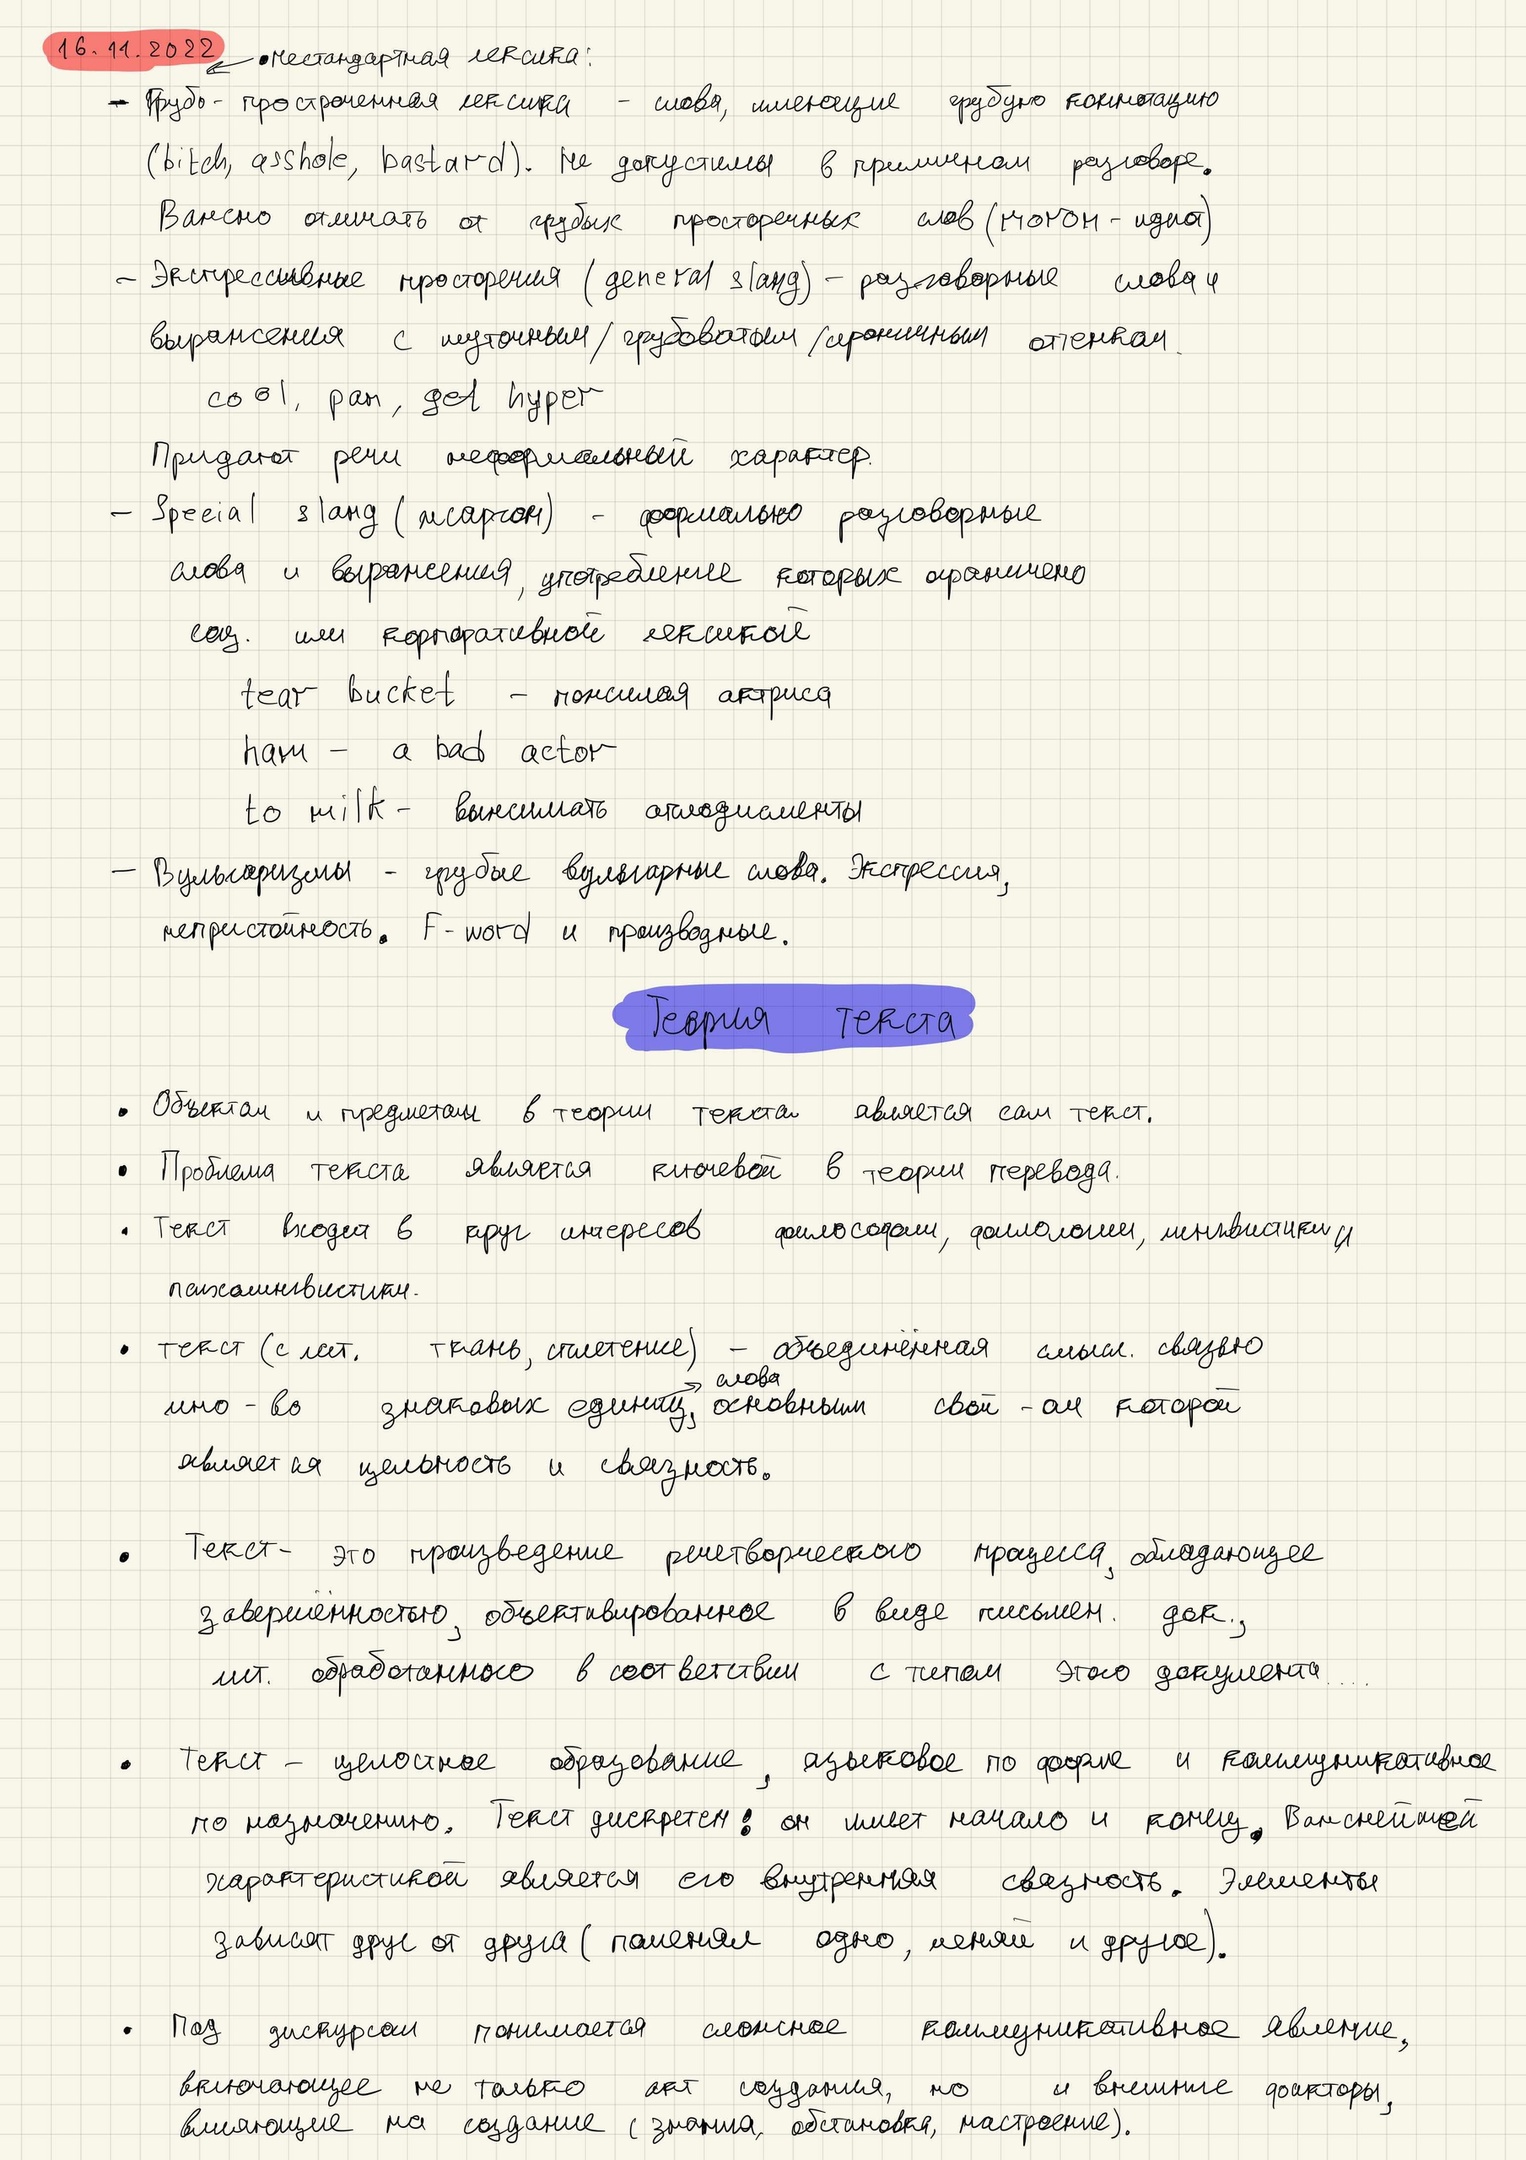 16.11.2022
• Нестандартная лексика:
- Грубо-простроченная лексика - слова, имеющие грубую коннотацию
(bitch, asshole, bastard). Не допустимы в приличном разговоре.
Важно отличать от грубых просторечных слов (
- Экспрессивные просторечия (general slang) - разговорные слова и
выражения с шуточным/грубоватым/ироничным оттенком.
cool, pan, get hyper
Придают речи неформальный характер.
- Special slang (жаргон) - формально разговорные
слова и выражения, употребление которых ограничено
соц. или корпоративной лексикой
tear bucket - пожилая актриса
ham - a bad actor
to milk - выжимать аплодисменты
- Вульгаризмы - грубые вульгарные слова. Экспрессия,
непристойность. F-word и производные.
Теория текста
• Объектом и предметом в теории текста является сам текст.
• Проблема текста является ключевой в теории перевода.
• Текст входит в круг интересов философии, филологии, лингвистики и
психолингвистики.
• Текст (с лат. ткань, сплетение) - объединённая смысл. связью
слова
мно-во знаковых единиц, основным свой-ом которой
является цельность и связность.
• Текст - это произведение речетворческого процесса, обладающее
завершённостью, объективированное в виде письмен. док.,
лит. обработанного в соответствии с типом этого документа....
• Текст - целостное образование, языковое по форме и коммуникативное
по назначению. Текст дискретен: он имеет начало и конец. Важнейшей
характеристикой является его внутренняя связность. Элементы
зависят друг от друга (поменял одно, меняй и другое).
• Под дискурсом понимается сложное коммуникативное явление,
включающее не только акт создания, но и внешние факторы,
влияющие на создание (знания, обстановка, настроение).